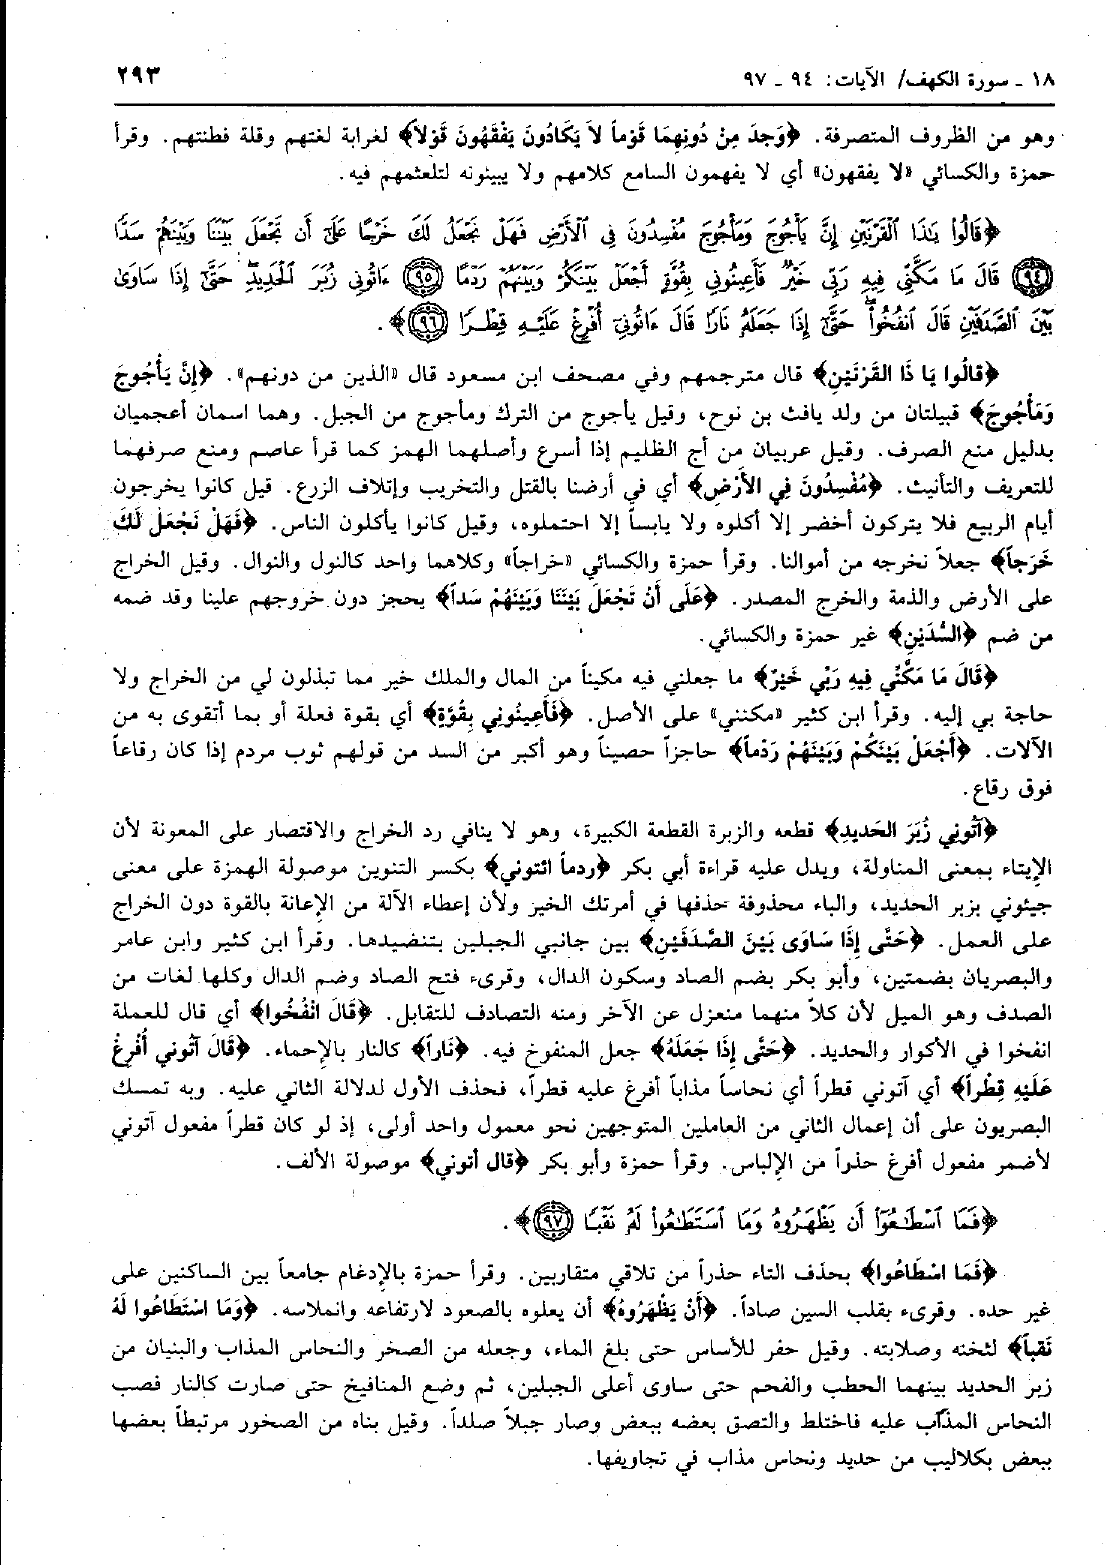 ١٨ ـ سورة الكهف/ الآيات: ٩٤ ـ ٩٧
٢٩٣
وهو من الظروف المتصرفة. ﴿وَجَدَ مِنْ دُونِهِمَا قَوْماً لاَ يَكَادُونَ يَفْقَهُونَ قَوْلاً﴾ لغرابة لغتهم وقلة فطنتهم. وقرأ
حمزة والكسائي «لا يفقهون» أي لا يفهمون السامع كلامهم ولا يبينونه لتلعثمهم فيه.
﴿قَالُوا۟ يَـٰذَا ٱلْقَرْنَيْنِ إِنَّ يَأْجُوجَ وَمَأْجُوجَ مُفْسِدُونَ فِى ٱلْأَرْضِ فَهَلْ نَجْعَلُ لَكَ خَرْجًا عَلَىٰٓ أَن تَجْعَلَ بَيْنَنَا وَبَيْنَهُمْ سَدًّا
﴿٩٤﴾ قَالَ مَا مَكَّنِّى فِيهِ رَبِّى خَيْرٌ فَأَعِينُونِى بِقُوَّةٍ أَجْعَلْ بَيْنَكُمْ وَبَيْنَهُمْ رَدْمًا ﴿٩٥﴾ ءَاتُونِى زُبَرَ ٱلْحَدِيدِ حَتَّىٰٓ إِذَا سَاوَىٰ
بَيْنَ ٱلصَّدَفَيْنِ قَالَ ٱنفُخُوا۟ حَتَّىٰٓ إِذَا جَعَلَهُۥ نَارًا قَالَ ءَاتُونِىٓ أُفْرِغْ عَلَيْهِ قِطْرًا ﴿٩٦﴾﴾.
﴿قَالُوا يَا ذَا القَرْنَيْنِ﴾ قال مترجمهم وفي مصحف ابن مسعود قال «الذين من دونهم». ﴿إِنَّ يَأْجُوجَ
وَمَأْجُوجَ﴾ قبيلتان من ولد يافث بن نوح، وقيل يأجوج من الترك ومأجوج من الجبل. وهما اسمان أعجميان
بدليل منع الصرف. وقيل عربيان من أج الظليم إذا أسرع وأصلهما الهمز كما قرأ عاصم ومنع صرفهما
للتعريف والتأنيث. ﴿مُفْسِدُونَ فِي الأَرْضِ﴾ أي في أرضنا بالقتل والتخريب وإتلاف الزرع. قيل كانوا يخرجون
أيام الربيع فلا يتركون أخضر إلا أكلوه ولا يابساً إلا احتملوه، وقيل كانوا يأكلون الناس. ﴿فَهَلْ نَجْعَلْ لَكَ
خَرَجاً﴾ جعلاً نخرجه من أموالنا. وقرأ حمزة والكسائي «خراجاً» وكلاهما واحد كالنول والنوال. وقيل الخراج
على الأرض والذمة والخرج المصدر. ﴿عَلَى أَنْ تَجْعَلَ بَيْنَنَا وَبَيْنَهُمْ سَداً﴾ يحجز دون خروجهم علينا وقد ضمه
من ضم ﴿السُّدَيْنِ﴾ غير حمزة والكسائي.
﴿قَالَ مَا مَكَّنِّي فِيهِ رَبِّي خَيْرٌ﴾ ما جعلني فيه مكيناً من المال والملك خير مما تبذلون لي من الخراج ولا
حاجة بي إليه. وقرأ ابن كثير «مكنني» على الأصل. ﴿فَأَعِينُونِي بِقُوَّةٍ﴾ أي بقوة فعلة أو بما أتقوى به من
الآلات. ﴿أَجْعَلْ بَيْنَكُمْ وَبَيْنَهُمْ رَدْماً﴾ حاجزاً حصيناً وهو أكبر من السد من قولهم ثوب مردم إذا كان رقاعاً
فوق رقاع.
﴿آتُونِي زُبَرَ الحَدِيدِ﴾ قطعه والزبرة القطعة الكبيرة، وهو لا ينافي رد الخراج والاقتصار على المعونة لأن
الإيتاء بمعنى المناولة، ويدل عليه قراءة أبي بكر ﴿ردماً ائتوني﴾ بكسر التنوين موصولة الهمزة على معنى
جيئوني بزبر الحديد، والباء محذوفة حذفها في أمرتك الخير ولأن إعطاء الآلة من الإعانة بالقوة دون الخراج
على العمل. ﴿حَتَّى إِذَا سَاوَى بَيْنَ الصَّدَفَيْنِ﴾ بين جانبي الجبلين بتنضيدها. وقرأ ابن كثير وابن عامر
والبصريان بضمتين، وأبو بكر بضم الصاد وسكون الدال، وقرىء فتح الصاد وضم الدال وكلها لغات من
الصدف وهو الميل لأن كلاً منهما منعزل عن الآخر ومنه التصادف للتقابل. ﴿قَالَ انْفُخُوا﴾ أي قال للعملة
انفخوا في الأكوار والحديد. ﴿حَتَّى إِذَا جَعَلَهُ﴾ جعل المنفوخ فيه. ﴿نَاراً﴾ كالنار بالإحماء. ﴿قَالَ آتُوني أُفْرِغْ
عَلَيْهِ قِطْراً﴾ أي آتوني قطراً أي نحاساً مذاباً أفرغ عليه قطراً، فحذف الأول لدلالة الثاني عليه. وبه تمسك
البصريون على أن إعمال الثاني من العاملين المتوجهين نحو معمول واحد أولى، إذ لو كان قطراً مفعول آتوني
لأضمر مفعول أفرغ حذراً من الإلباس. وقرأ حمزة وأبو بكر ﴿قال أتوني﴾ موصولة الألف.
﴿فَمَا ٱسْطَـٰعُوٓا۟ أَن يَظْهَرُوهُ وَمَا ٱسْتَطَـٰعُوا۟ لَهُۥ نَقْبًا ﴿٩٧﴾﴾.
﴿فَمَا اسْطَاعُوا﴾ بحذف التاء حذراً من تلاقي متقاربين. وقرأ حمزة بالإدغام جامعاً بين الساكنين على
غير حده. وقرىء بقلب السين صاداً. ﴿أَنْ يَظْهَرُوهُ﴾ أن يعلوه بالصعود لارتفاعه وانملاسه. ﴿وَمَا اسْتَطَاعُوا لَهُ
نَقباً﴾ لثخنه وصلابته. وقيل حفر للأساس حتى بلغ الماء، وجعله من الصخر والنحاس المذاب والبنيان من
زبر الحديد بينهما الحطب والفحم حتى ساوى أعلى الجبلين، ثم وضع المنافيخ حتى صارت كالنار فصب
النحاس المذاب عليه فاختلط والتصق بعضه ببعض وصار جبلاً صلداً. وقيل بناه من الصخور مرتبطاً بعضها
ببعض بكلاليب من حديد ونحاس مذاب في تجاويفها.